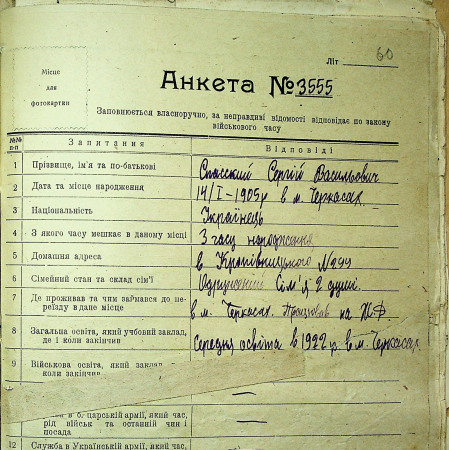 Літ 60
Місце
для
фотокартки
Анкета № 3555
Заповнюється власноручно, за неправдиві відомості відповідає по закону
військового часу
№№
п-п
Запитання
Відповіді
1 Прізвище, ім'я та по-батькові Спасский Сергій Васильович
2 Дата та місце народження 14/I-1905р в м. Черкасах
3 Національність Українець
4 З якого часу мешкає в даному місці З часу народження
5 Домашня адреса в. Кропівницького №
6 Сімейний стан та склад сім'ї Одружений Сім'я 2 душі.
7 Де проживав та чим займався до пе-
реїзду в дане місце в м. Черкасах. Працював на
8 Загальна освіта, який учбовий заклад,
де і коли закінчив Середня освіта в 1922 р. в м. Черкасах
9 Військова освіта, який заклад
коли закінчив
в б. царській армії, який час,
рід військ та останній чин і
посада
12 Служба в Українській армії, який час,